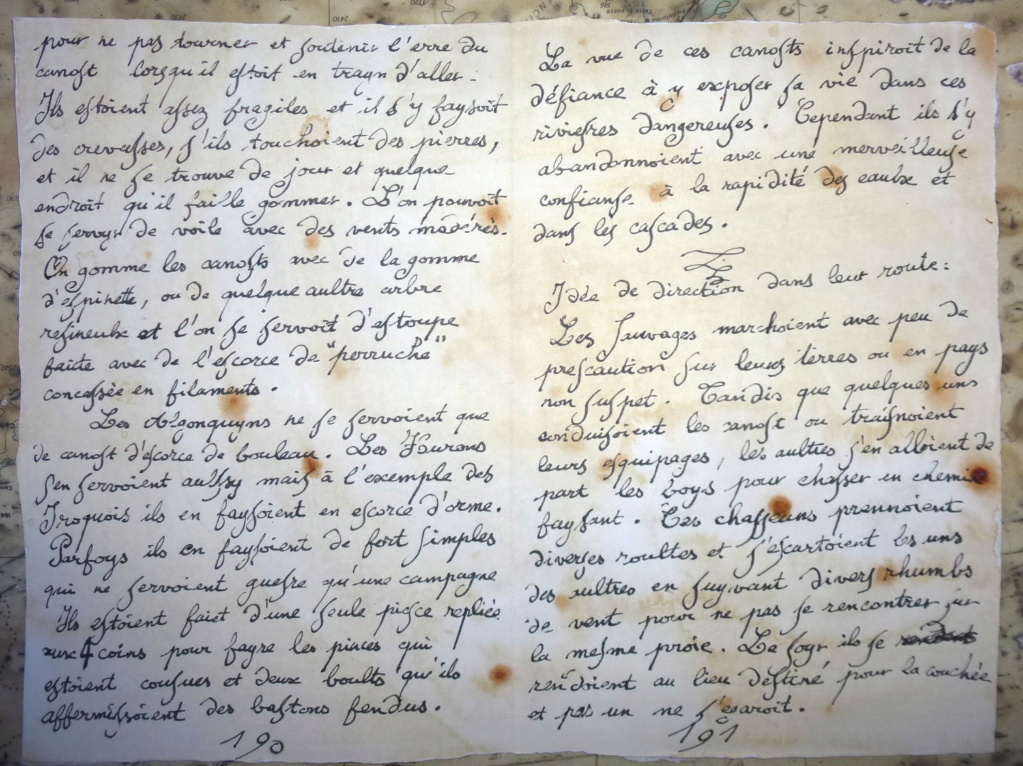 pour ne pas tourner et soutenir l'erre du
canost lorsqu'il estoit en trayn d'aller.
Ils estoient assez fragiles et il s'y faysoit
des crevasses, s'ils touchoient des pierres,
et il ne se trouve de jour et quelque
endroit qu'il faille gommer. L'on pouvoit
se servyr de voile avec des vents modérés.
On gomme les canosts avec de la gomme
d'espinette, ou de quelque aultre arbre
resineulx et l'on se servoit d'estoupe
faicte avec de l'escorce de "perruche"
concassée en filaments.
Les Algonquyns ne se servoient que
de canost d'escorce de bouleau. Les Hurons
s'en servoient aulssy mais à l'exemple des
Iroquois ils en faysoient en escorce d'orme.
Parfoys ils en faysoient de fort simples
qui ne servoient guesre qu'une campagne
Ils estoient faict d'une seule piesce repliée
aux 4 coins pour fayre les pinces qui
estoient cousues et deux boults qu'ils
affermissoient des bastons fendus.
190
La vue de ces canosts inspiroit de la
défiance à y exposer sa vie dans ces
riviesres dangereuses. Cependant ils s'y
abandonnoient avec une merveilleuse
confianse à la rapidité des eaulx et
dans les cascades.
Idée de direction dans leur route:
Les sauvages marchoient avec peu de
prescaution sur leurs terres ou en pays
non suspet. Tandis que quelques uns
conduisoient les canost ou traisnoient
leurs esquipages, les aultres s'en alloient de
part les boys pour chasser en chemin
faysant. Ces chasseurs prennoient
diverses roultes et s'escartoient les uns
des aultres en suyvant divers rhumbs
de vent pour ne pas se rencontrer sur
la mesme proie. Le soyr ils se
rendoient au lieu destiné pour la couchée
et pas un ne s'esgaroit.
191